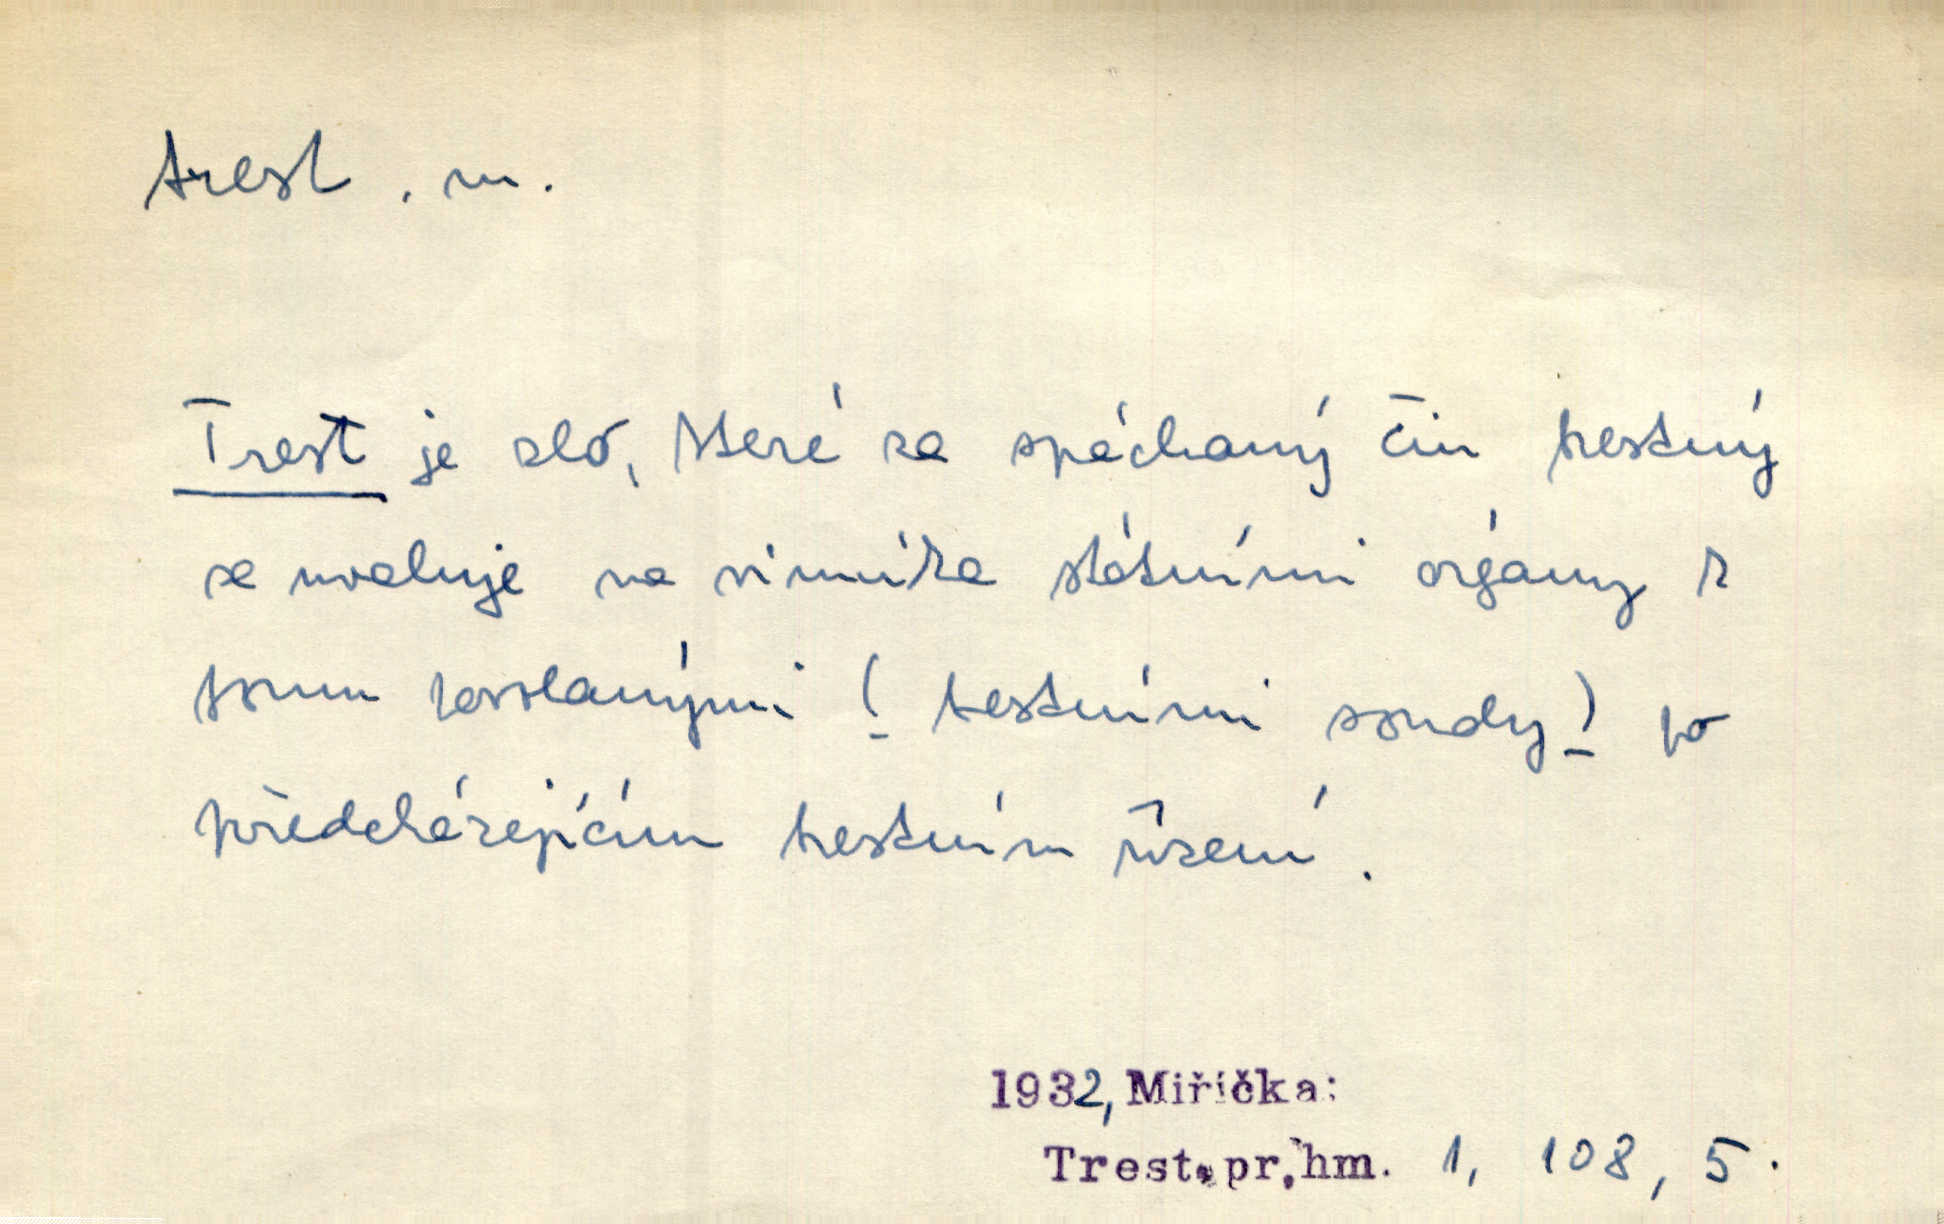 trest, m.
Trest je zlo, které za spáchaný čin trestný
se uvaluje na viníka státními orgány k
tomu povolanými (trestními soudy) po
předcházejícím trestním řízení.
1932, Miřička:
Trest. pr. hm. 1, 108, 5.